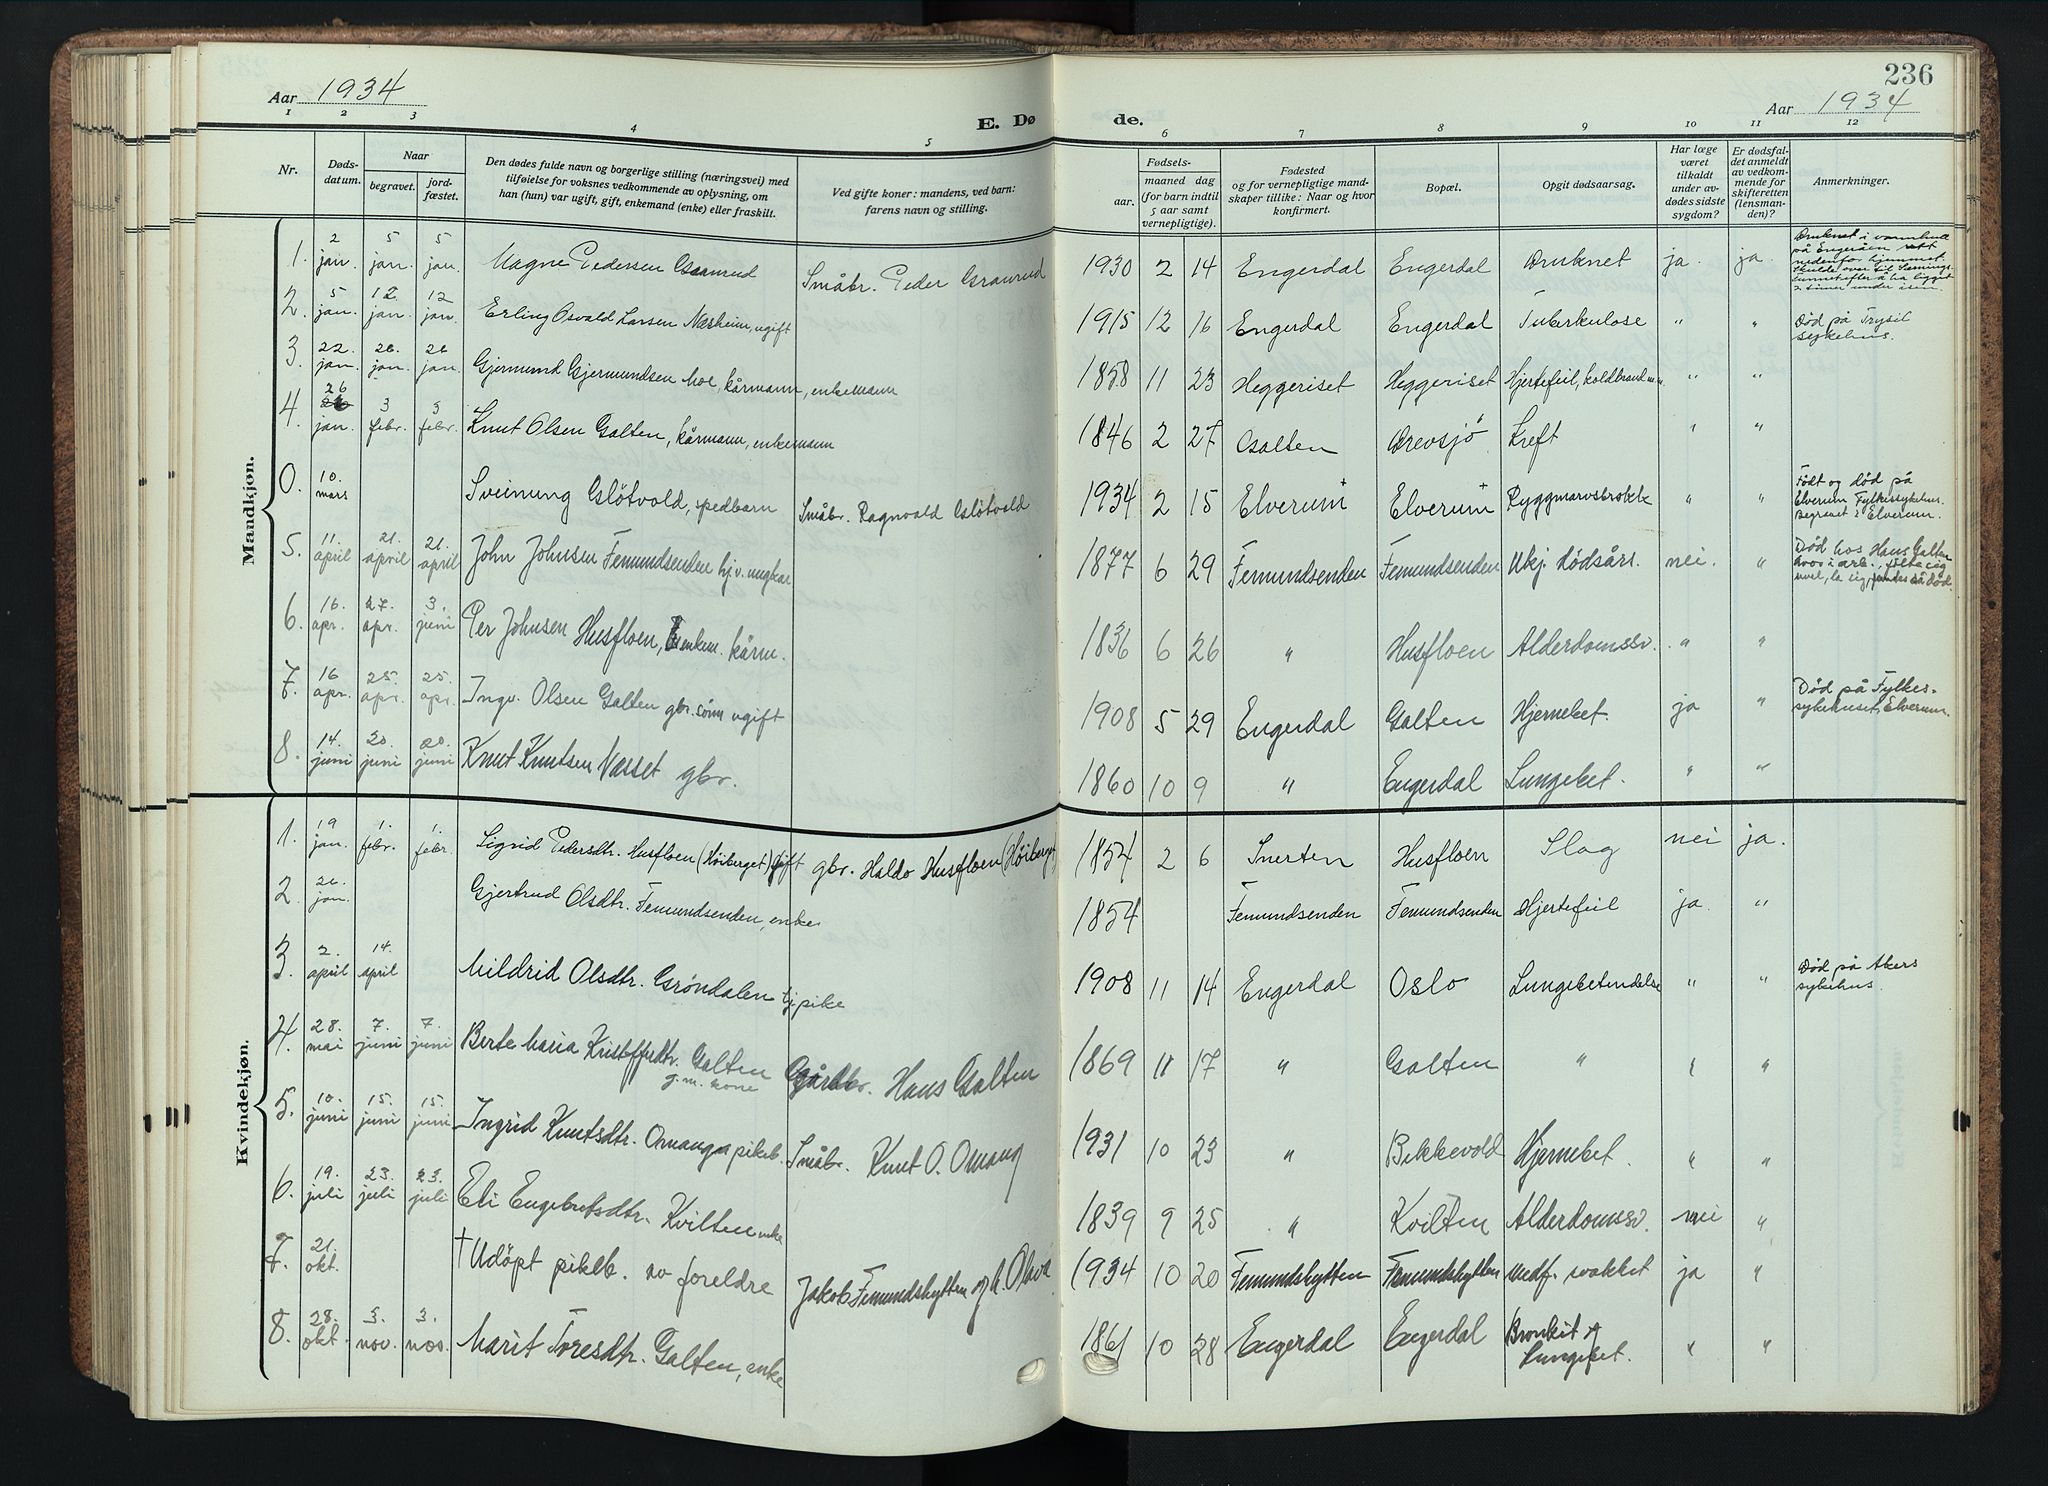 236
Aar 1934
Aar 1934
E. Dø
de.
1 2 3 4 5 6 7 8 9 10 11 12
Nr.
Døds-
datum.
Naar
begravet.
jord-
fæstet.
Den dødes fulde navn og borgerlige stilling (næringsvei) med
tilføielse for voksnes vedkommende av oplysning, om
han (hun) var ugift, gift, enkemand (enke) eller fraskilt.
Ved gifte koner: mandens, ved barn:
farens navn og stilling.
Fødsels-
aar.
maaned dag
(for barn indtil
5 aar samt
vernepligtige).
Fødested
og for vernepligtige mand-
skaper tillike: Naar og hvor
konfirmert.
Bopæl.
Opgit dødsaarsag.
Har læge
været
tilkaldt
under av-
dødes sidste
sygdom?
Er dødsfal-
det anmeldt
av vedkom-
mende for
skifteretten
(lensman-
den)?
Anmerkninger.
Maandkjøn.
1. 2 jan. 5 jan. 5 jan. Magne Pedersen Graanrud Småbr. Peder Graanrud 1930 2 14 Engerdal Engerdal Druknet ja. ja. Druknet i
på Engeråen rett
nedenfor hjemmet.
2 timer under isen.
2. 5 jan. 12. jan. 12 jan. Erling Osvald Larsen Næsheim, ugift 1915 12 16 Engerdal Engerdal Tuberkulose " " Død på Trysil
sykehus.
3. 22. jan. 26. jan. 26 jan. Gjermund Gjermundsen Moe, kårmann, enkemann 1858 11 23 Heggeriset Heggeriset Hjertefeil, koldbrand m.m. " "
4. 26 jan. 3 febr. 3 febr. Knut Olsen Galten, kårmann, enkemann 1846 2 27 Galten Drevsjö Kreft " "
0. 10. mars Sveinung Glötvold, spedbarn Småbr. Ragnvald Glötvold 1934 2 15 Elverum Elverum Ryggmarvsbrokk " " Født og död på
Elverum Fylkessykehus.
Begravet i Elverum.
5. 11. april 21. april 21. april John Johnsen Femundsenden hjv. ungkar 1877 6 29 Femundsenden Femundsenden Ukj. dödsårs. nei. " Död hos Hans Galten
6. 16. apr. 27. apr. 3. juni Per Johnsen Husfloen, enkem. kårm. 1836 6 26 " Husfloen Alderdomssv. " "
7. 16 apr. 25. apr. 25. apr. Ingv. Olsen Galten gbr. sönn ugift 1908 5 29 Engerdal Galten Hjernebet. ja " Död på Fylkes-
sykehuset, Elverum.
8. 14. juni 20. juni 20. juni Knut Knutsen Næsset gbr. 1860 10 9 " Engerdal Lungebet. " "
Kvindekjøn.
1. 19 jan. 1. febr. 1. febr. Sigrid Pedersdtr. Husfloen (Höiberget) gift gbr. Haldo Husfloen (Höiberget) 1854 2 6 Snerten Husfloen Slag nei ja.
2. 26. jan. Gjertrud Olsdtr. Femundsenden, enke 1854 Femundsenden Femundsenden Hjertefeil ja. "
3. 2. april 14. april Mildrid Olsdtr. Gröndalen tj. pike 1908 11 14 Engerdal Oslo Lungebetendelse " " Död på Akers
sykehus.
4. 28. mai 7. juni 7. juni Berte Maria Kristoffersdtr. Galten
g.m. kone Gårdbr. Hans Galten 1869 11 17 " Galten " " "
5. 10. juni 15. juni 15. juni Ingrid Knutsdtr. Omang pikeb. Småbr. Knut O. Omang 1931 10 23 " Bekkevold Hjernebet. " "
6. 19. juli 23. juli 23. juli Eli Engebretsdtr. Kvilten enke 1839 9 25 " Kvilten Alderdomssv. nei "
7. 21. okt. † Udöpt pikeb. av foreldre Jakob Femundshytten og h. Olava 1934 10 20 Femundshytten Femundshytten Medf. svakhet ja "
8. 28. okt. 3. nov. 3. nov. Marit Toresdtr. Galten, enke 1861 10 28 Engerdal Engerdal Bronkit og
Lungebet. " "